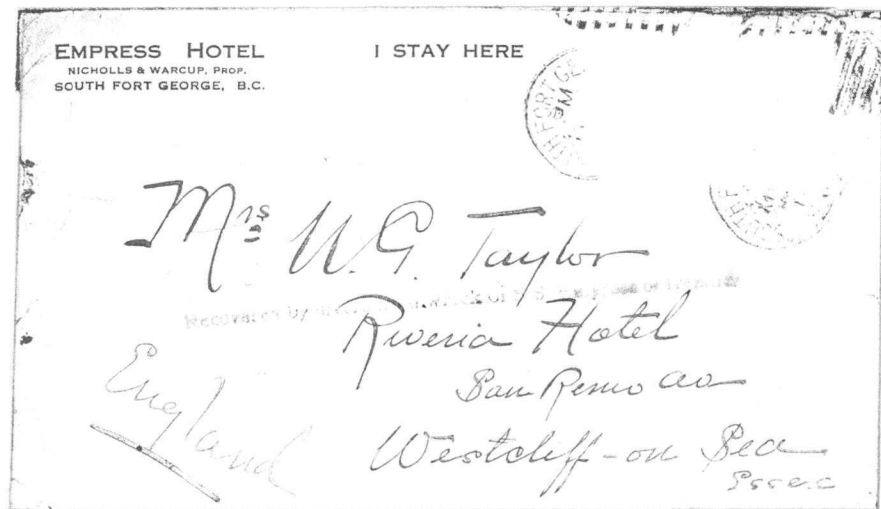 EMPRESS HOTEL
NICHOLLS & WARCUP, PROP.
SOUTH FORT GEORGE, B.C.
I STAY HERE
Mrs W. G. Taylor
Recovered by
Riveria Hotel
San Remo
Westcliff-on Sea
Essex
England